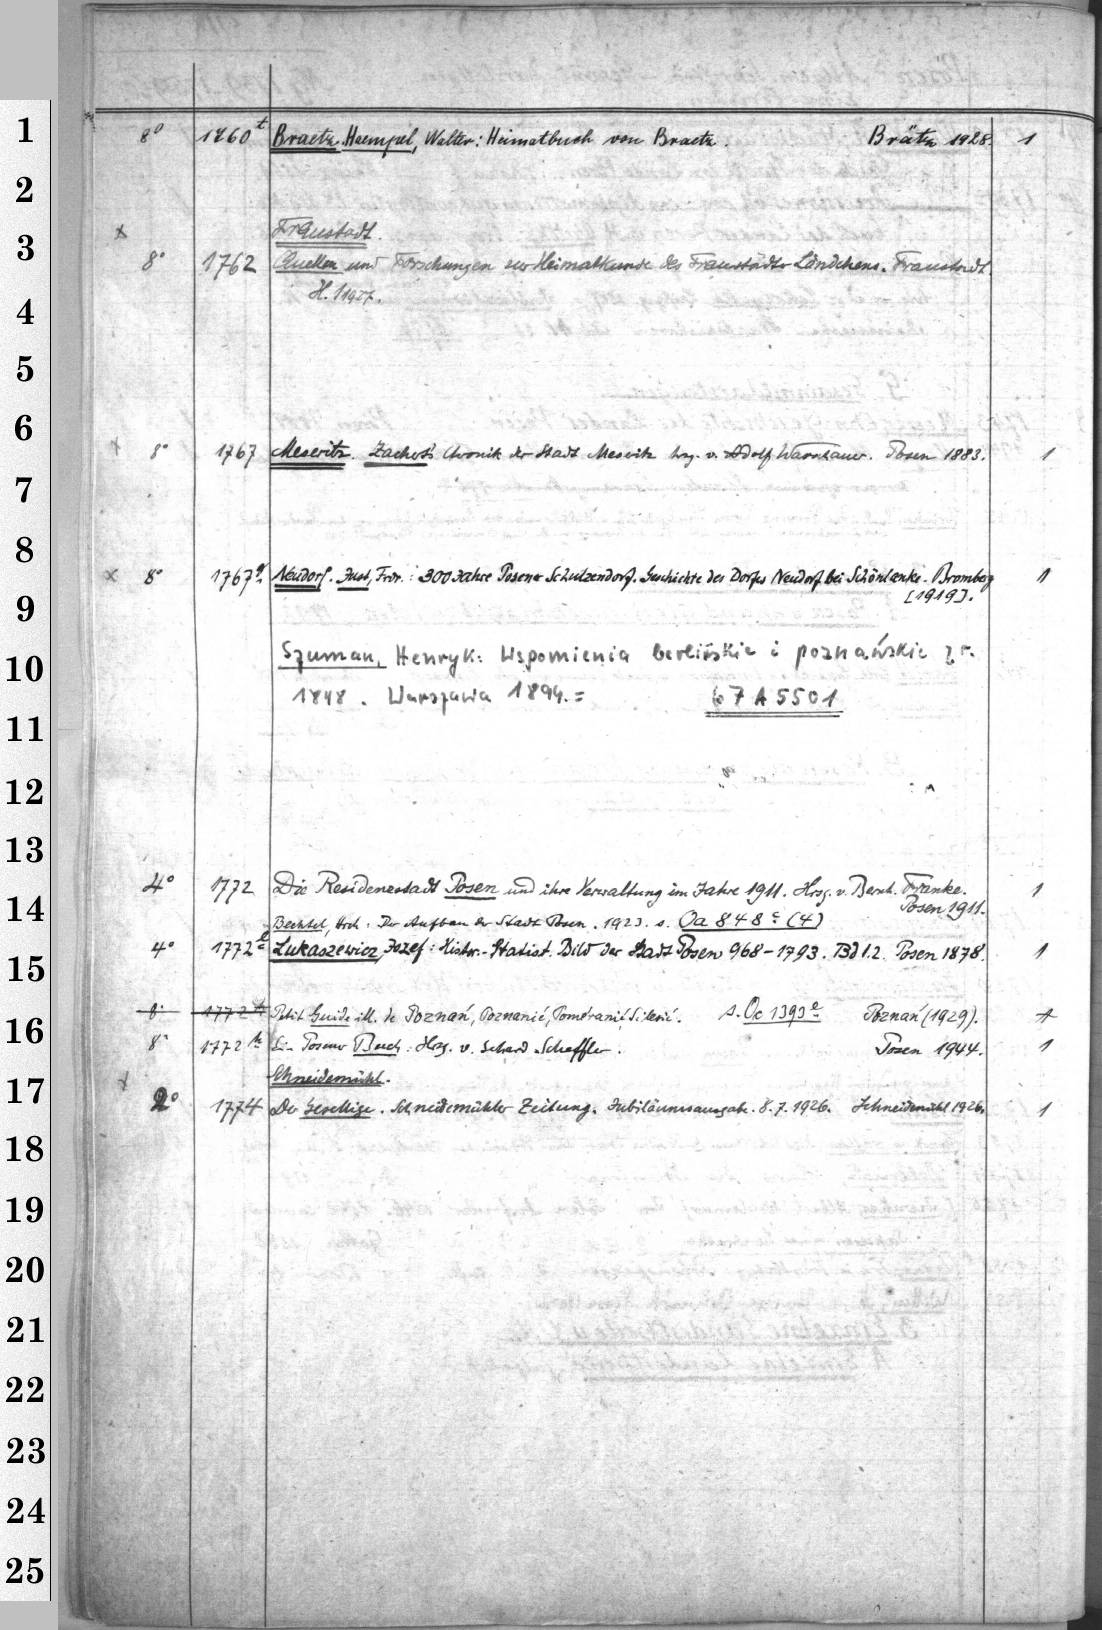 1 8° 1760 t Braetz. Haempel, Walter: Heimatbuch von Braetz. Brätz 1928. 1
2
x Fraustadt.
3 8° 1762 Quellen und Forschungen zur Heimatkunde des Fraustädter Ländchens. Fraustadt
4 H. 1 1927.
5
6 x 8° 1767 Meseritz. Zachert's Chronik der Stadt Meseritz hrg. v. Adolf Warschauer. Posen 1883. 1
7
8 x 8° 1767 a. Neudorf. Just, Frdr.: 300 Jahre Posener Schulzendorf. Geschichte des Dorfes Neudorf bei Schönlanke. Bromberg 1
9 [1919].
10 Szuman, Henryk: Wspomienia berlińskie i poznańskie z r.
1848. Warszawa 1894. = 67 A 5501
11
12
13
4° 1772 Die Residenzstadt Posen und ihre Verwaltung im Jahre 1911. Hrsg. v. Bernh. Franke. 1
14 Posen 1911.
Bechtel, Hrch: Der Aufbau der Stadt Posen. 1923. s. Oa 848 c (4)
15 4° 1772 e Lukaszewicz, Jozef: Histor.-Statist. Bild der Stadt Posen 968-1793. Bd 1.2. Posen 1878. 1
16 8° 1772 Petit Guide ill. de Poznań, Poznanie, Pomeranie, Silesie. s. Oc 1393 e Poznań (1929). 1
8° 1772 Posener Buch. Hrsg. v. Scheffler. Posen 1944. 1
17 x Schneidemühl.
2° 1774 Der Gesellige. Schneidemühler Zeitung. Jubiläumsausgabe. 8.7.1926. Schneidemühl 1926. 1
18
19
20
21
22
23
24
25